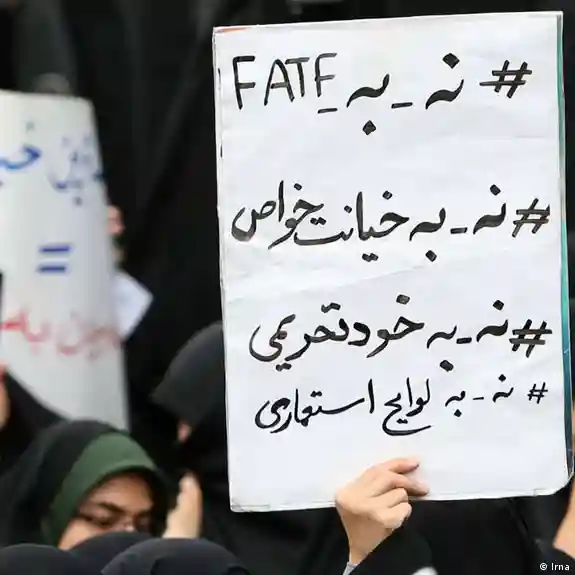 #نه_به_FATF
#نه_به خیانت خواص
#نه_به خودتحریمی
#نه_به لوایح استعماری
=
© Irna